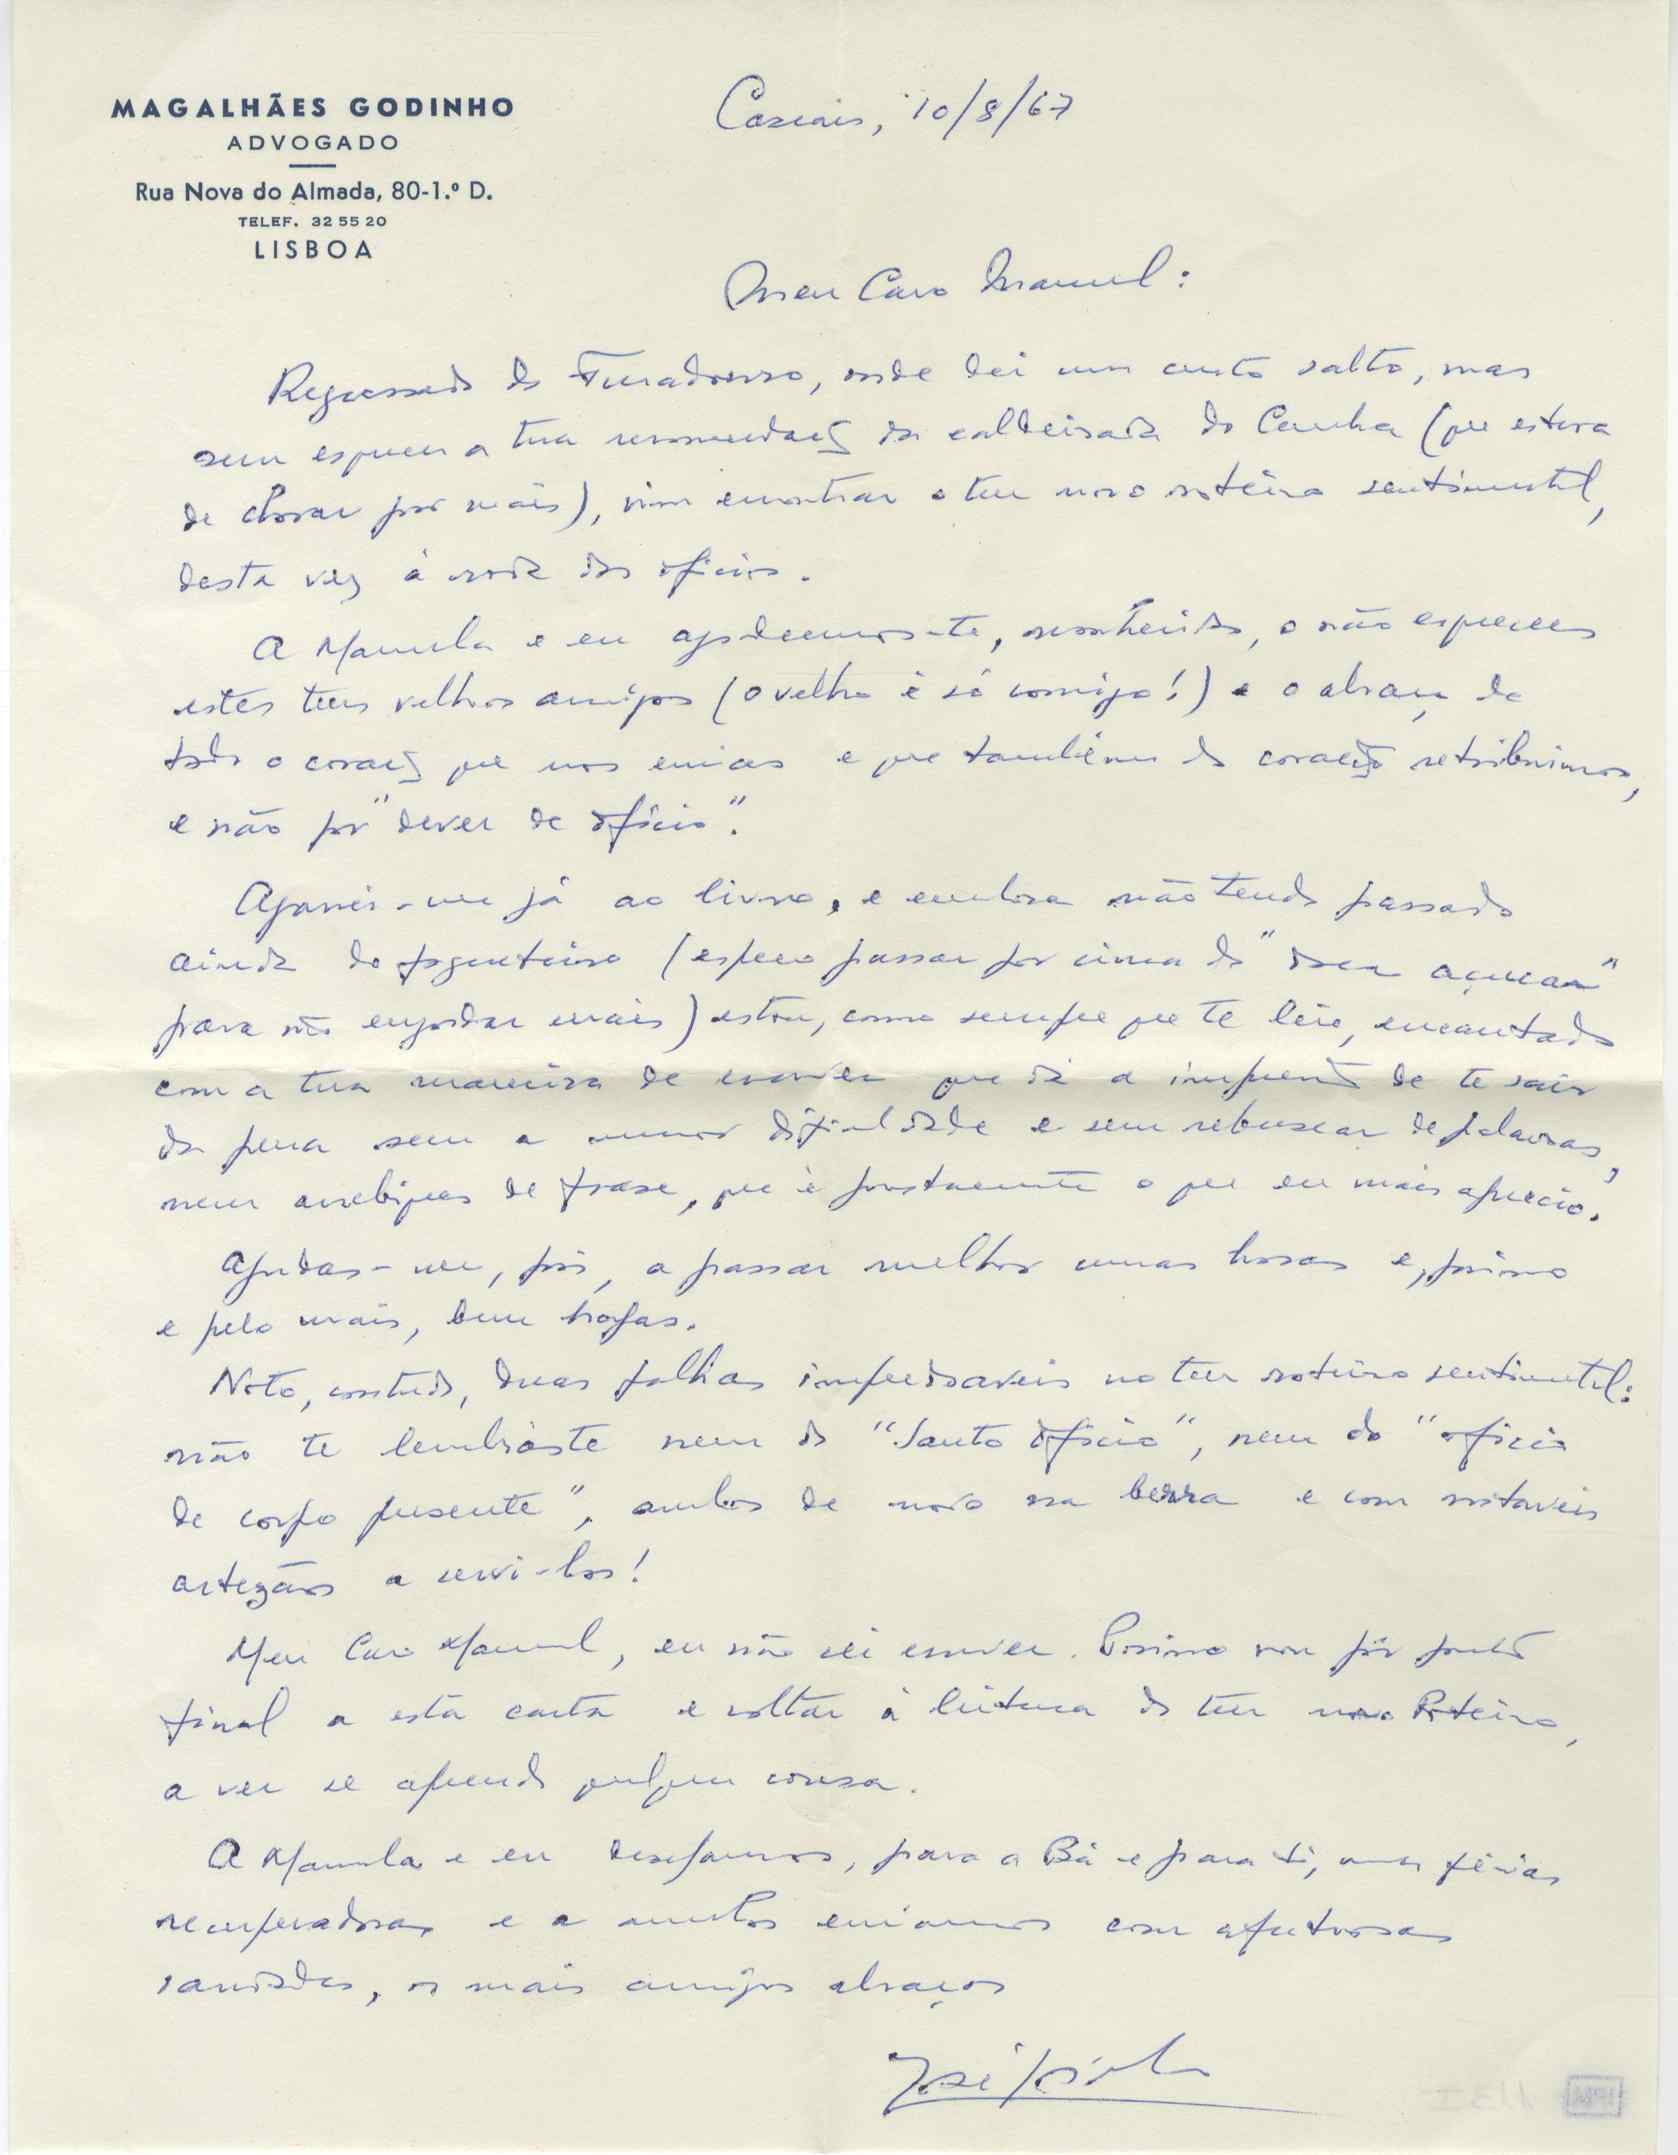 MAGALHÃES GODINHO
ADVOGADO
Rua Nova do Almada, 80-1.º D.
TELEF. 32 55 20
LISBOA
Cascais, 10/8/67
Meu Caro Manuel:
Regressado do Furadouro, onde dei um curto salto, mas
sem esquecer a tua recomendação da caldeirada do Cunha (que estava
de chorar por mais), vim encontrar o teu novo roteiro sentimental,
desta vez à roda dos ofícios.
A Manuela e eu agradecemos-te, reconhecidos, o não esqueceres
estes teus velhos amigos (o velho é só comigo!) e o abraço de
todo o coração que nos envias e que também do coração retribuimos,
e não por "dever de ofício".
Agarrei-me já ao livro, e embora não tendo passado
ainda do fogueteiro (espero passar por cima do "doce açucar"
para não engordar mais) estou, como sempre que te leio, encantado
com a tua maneira de escrever que dá a impressão de te sair
da pena sem a menor dificuldade e sem rebuscar de palavras,
nem arrebiques de frase, que é justamente o que eu mais aprecio.
Ajudas-me, pois, a passar melhor umas horas e, por isso
e pelo mais, bem hajas.
Noto, contudo, duas falhas imperdoaveis no teu roteiro sentimental:
não te lembraste nem do "Santo Ofício", nem do "ofício
de corpo presente", ambos de novo na berra e com notaveis
artezãos a servi-los!
Meu Caro Manuel, eu não sei escrever. Por isso vou pôr ponto
final a esta carta e voltar à leitura do teu novo Roteiro,
a ver se aprendo qualquer cousa.
A Manuela e eu desejamos, para a Bá e para ti, umas férias
recuperadoras e a ambos enviamos com afectuosas
saudades, os mais amigos abraços
José